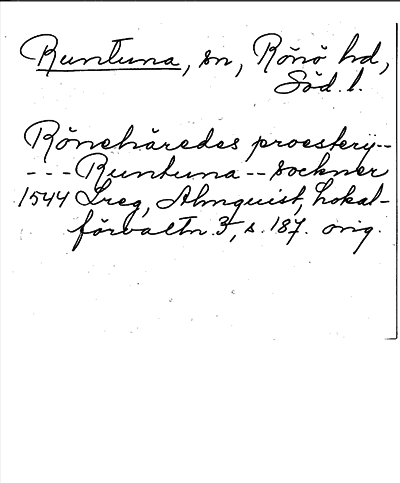 Runtuna, sn, Rönö hd,
Söd. l.
Rönehäredes proesterij--
--- Runtuna -- sockner
1544 Lreg, Almquist, Lokal-
förvaltn. 3, s. 187. orig.